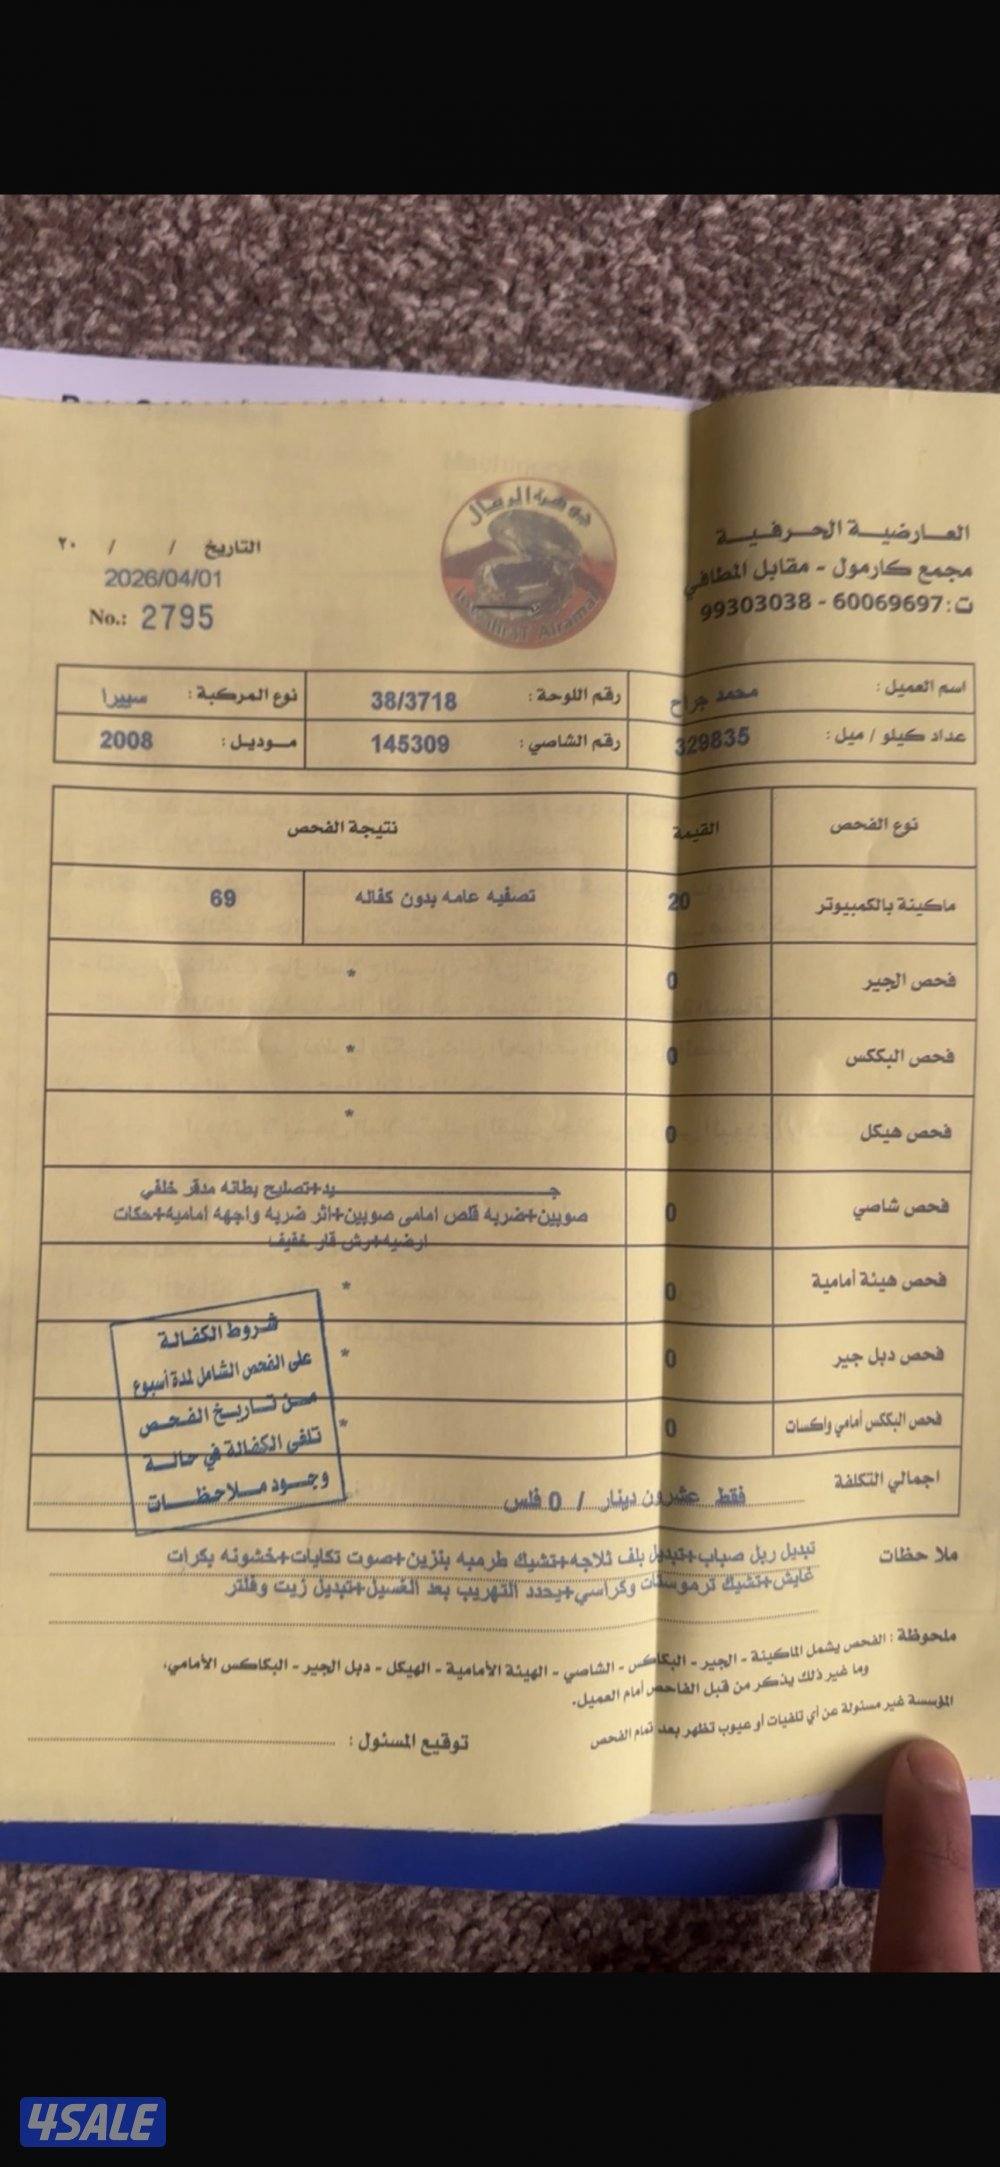 جوهرة الرمال
Jawharat Alramal
العارضية الحرفية
مجمع كارمول - مقابل المطافي
ت: 60069697 - 99303038
التاريخ / / ٢٠
2026/04/01
No.: 2795
اسم العميل : محمد جراح رقم اللوحة : 38/3718 نوع المركبة : سييرا
عداد كيلو / ميل : 329835 رقم الشاصي : 145309 موديل : 2008
نوع الفحص القيمة نتيجة الفحص
ماكينة بالكمبيوتر 20 تصفيه عامه بدون كفاله 69
فحص الجير 0 *
فحص البككس 0 *
فحص هيكل 0 *
فحص شاصي 0 جـــيد+تصليح بطانه مدقر خلفي
صوبين+ضربه قلص امامى صوبين+اثر ضربه واجهه اماميه+حكات
ارضيه+رش قار خفيف
فحص هيئة أمامية 0 *
فحص دبل جير 0 *
فحص البككس أمامي واكسات 0 *
اجمالي التكلفة فقط عشرون دينار / 0 فلس
شروط الكفالة
على الفحص الشامل لمدة أسبوع
من تاريخ الفحص
تلغى الكفالة في حالة
وجود ملاحظات
ملا حظات تبديل ربل صباب+تبديل بلف ثلاجه+تشيك طرمبه بنزين+صوت تكايات+خشونه بكرات
غايش+تشيك ترموستات وكراسي+يحدد التهريب بعد الغسيل+تبديل زيت وفلتر
ملحوظة : الفحص يشمل الماكينة - الجير - البكاكس - الشاصي - الهيئة الأمامية - الهيكل - دبل الجير - البكاكس الأمامي،
وما غير ذلك يذكر من قبل الفاحص أمام العميل.
المؤسسة غير مسئولة عن أي تلفيات أو عيوب تظهر بعد تمام الفحص
توقيع المسئول :
4SALE